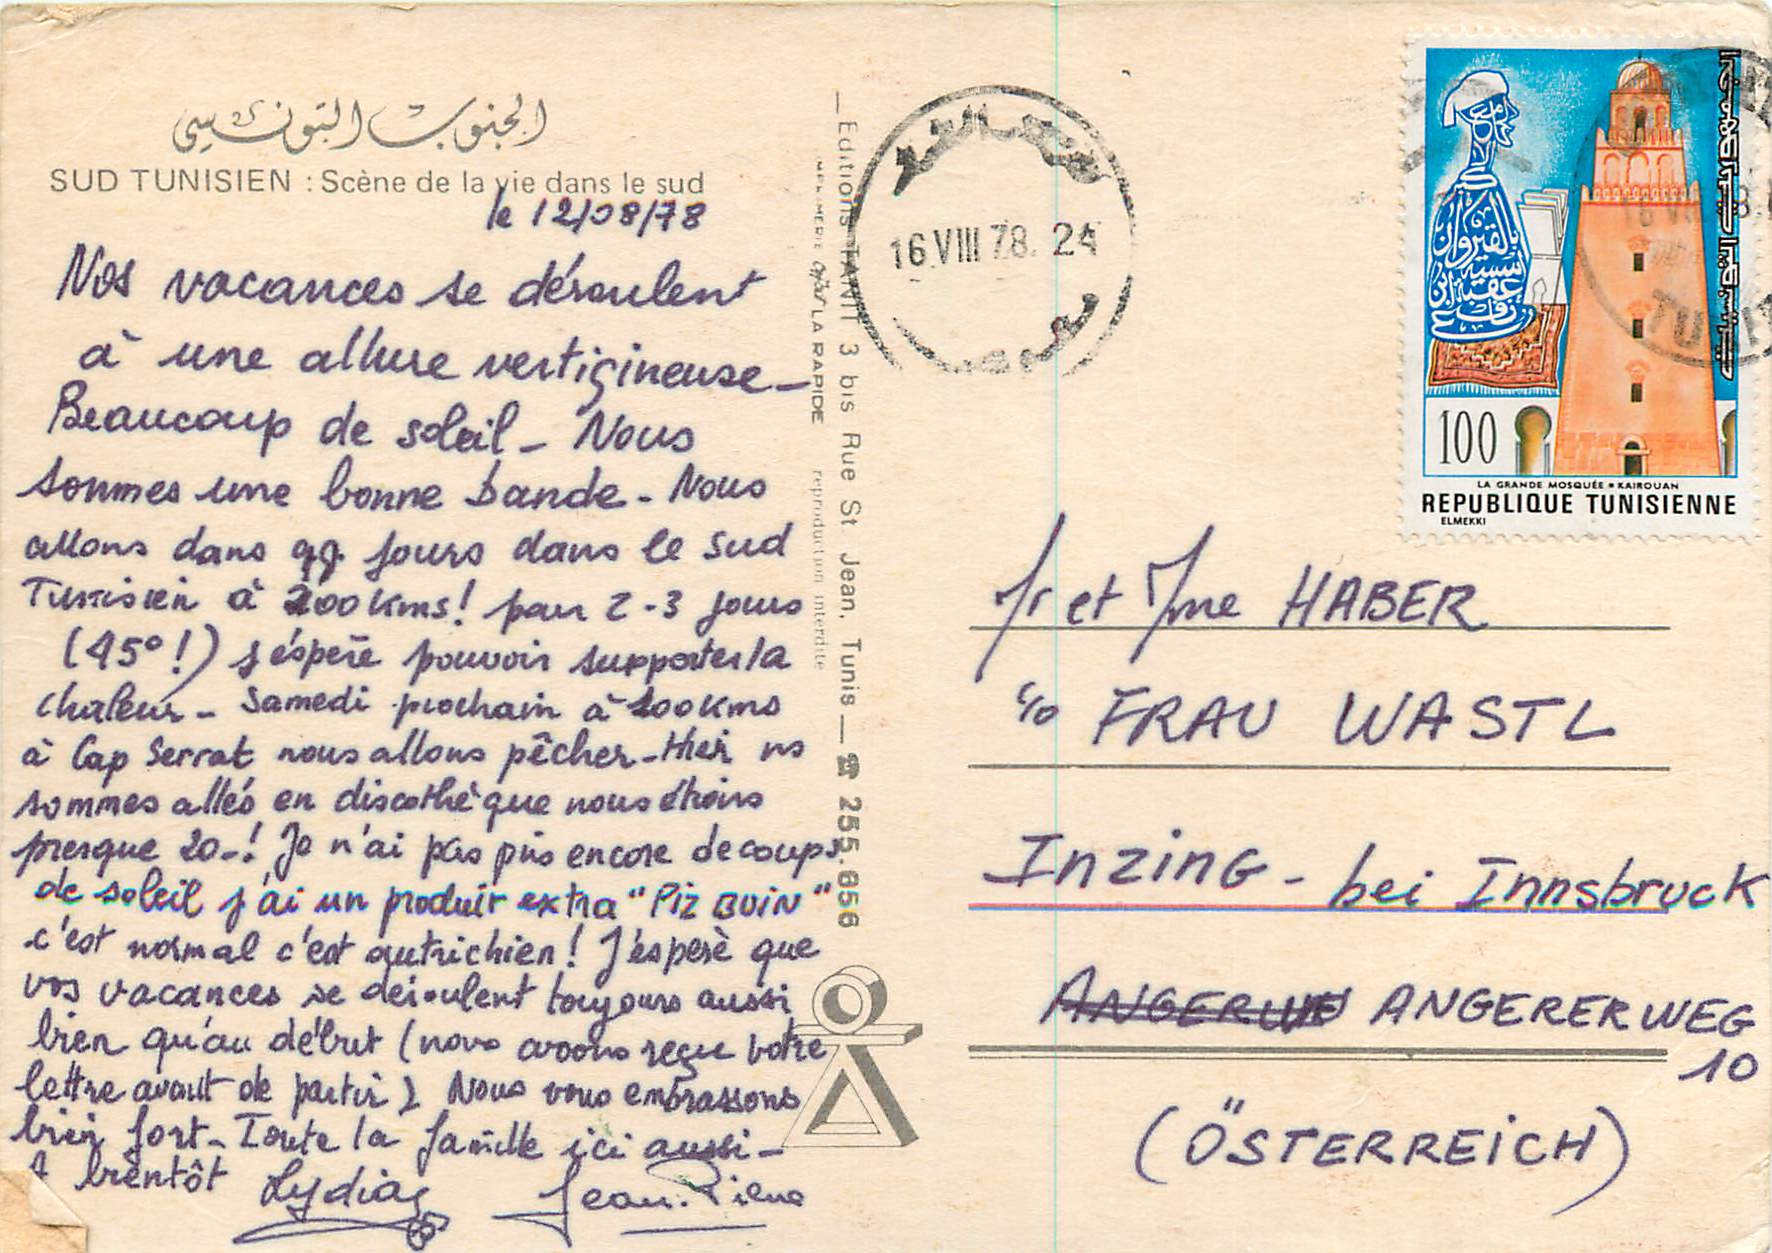 الجنوب التونسي
SUD TUNISIEN : Scène de la vie dans le sud
le 12/08/78
Nos vacances se déroulent
à une allure vertigineuse_
Beaucoup de soleil_ Nous
sommes une bonne bande_ Nous
allons dans qq jours dans le sud
Tunisien à 200 Kms! pour 2-3 jours
(45°!) j'éspère pouvoir supporter la
chaleur_ Samedi prochain à 200 kms
à Cap Serrat nous allons pêcher_ Hier ns
sommes allés en discothèque nous étions
presque 20_! Je n'ai pas pris encore de coups
de soleil j'ai un produit extra "PIZ BUIN"
c'est normal c'est autrichien! J'éspère que
vos vacances se déroulent toujours aussi
bien qu'au début (nous avons reçu votre
lettre avant de partir) Nous vous embrassons
bien fort_ Toute la famille ici aussi_
A bientôt Lydia Jean-Pierre
Editions TANIT 3 bis Rue St Jean, Tunis — ☎ 255.656
IMPRIMERIE LA RAPIDE reproduction interdite
16 VIII 78. 24
بالقيروان
عقبة ابن
100
LA GRANDE MOSQUÉE • KAIROUAN
REPUBLIQUE TUNISIENNE
ELMEKKI
Mr et Mme HABER
c/o FRAU WASTL
INZING - bei Innsbruck
ANGERERWEG
10
(ÖSTERREICH)